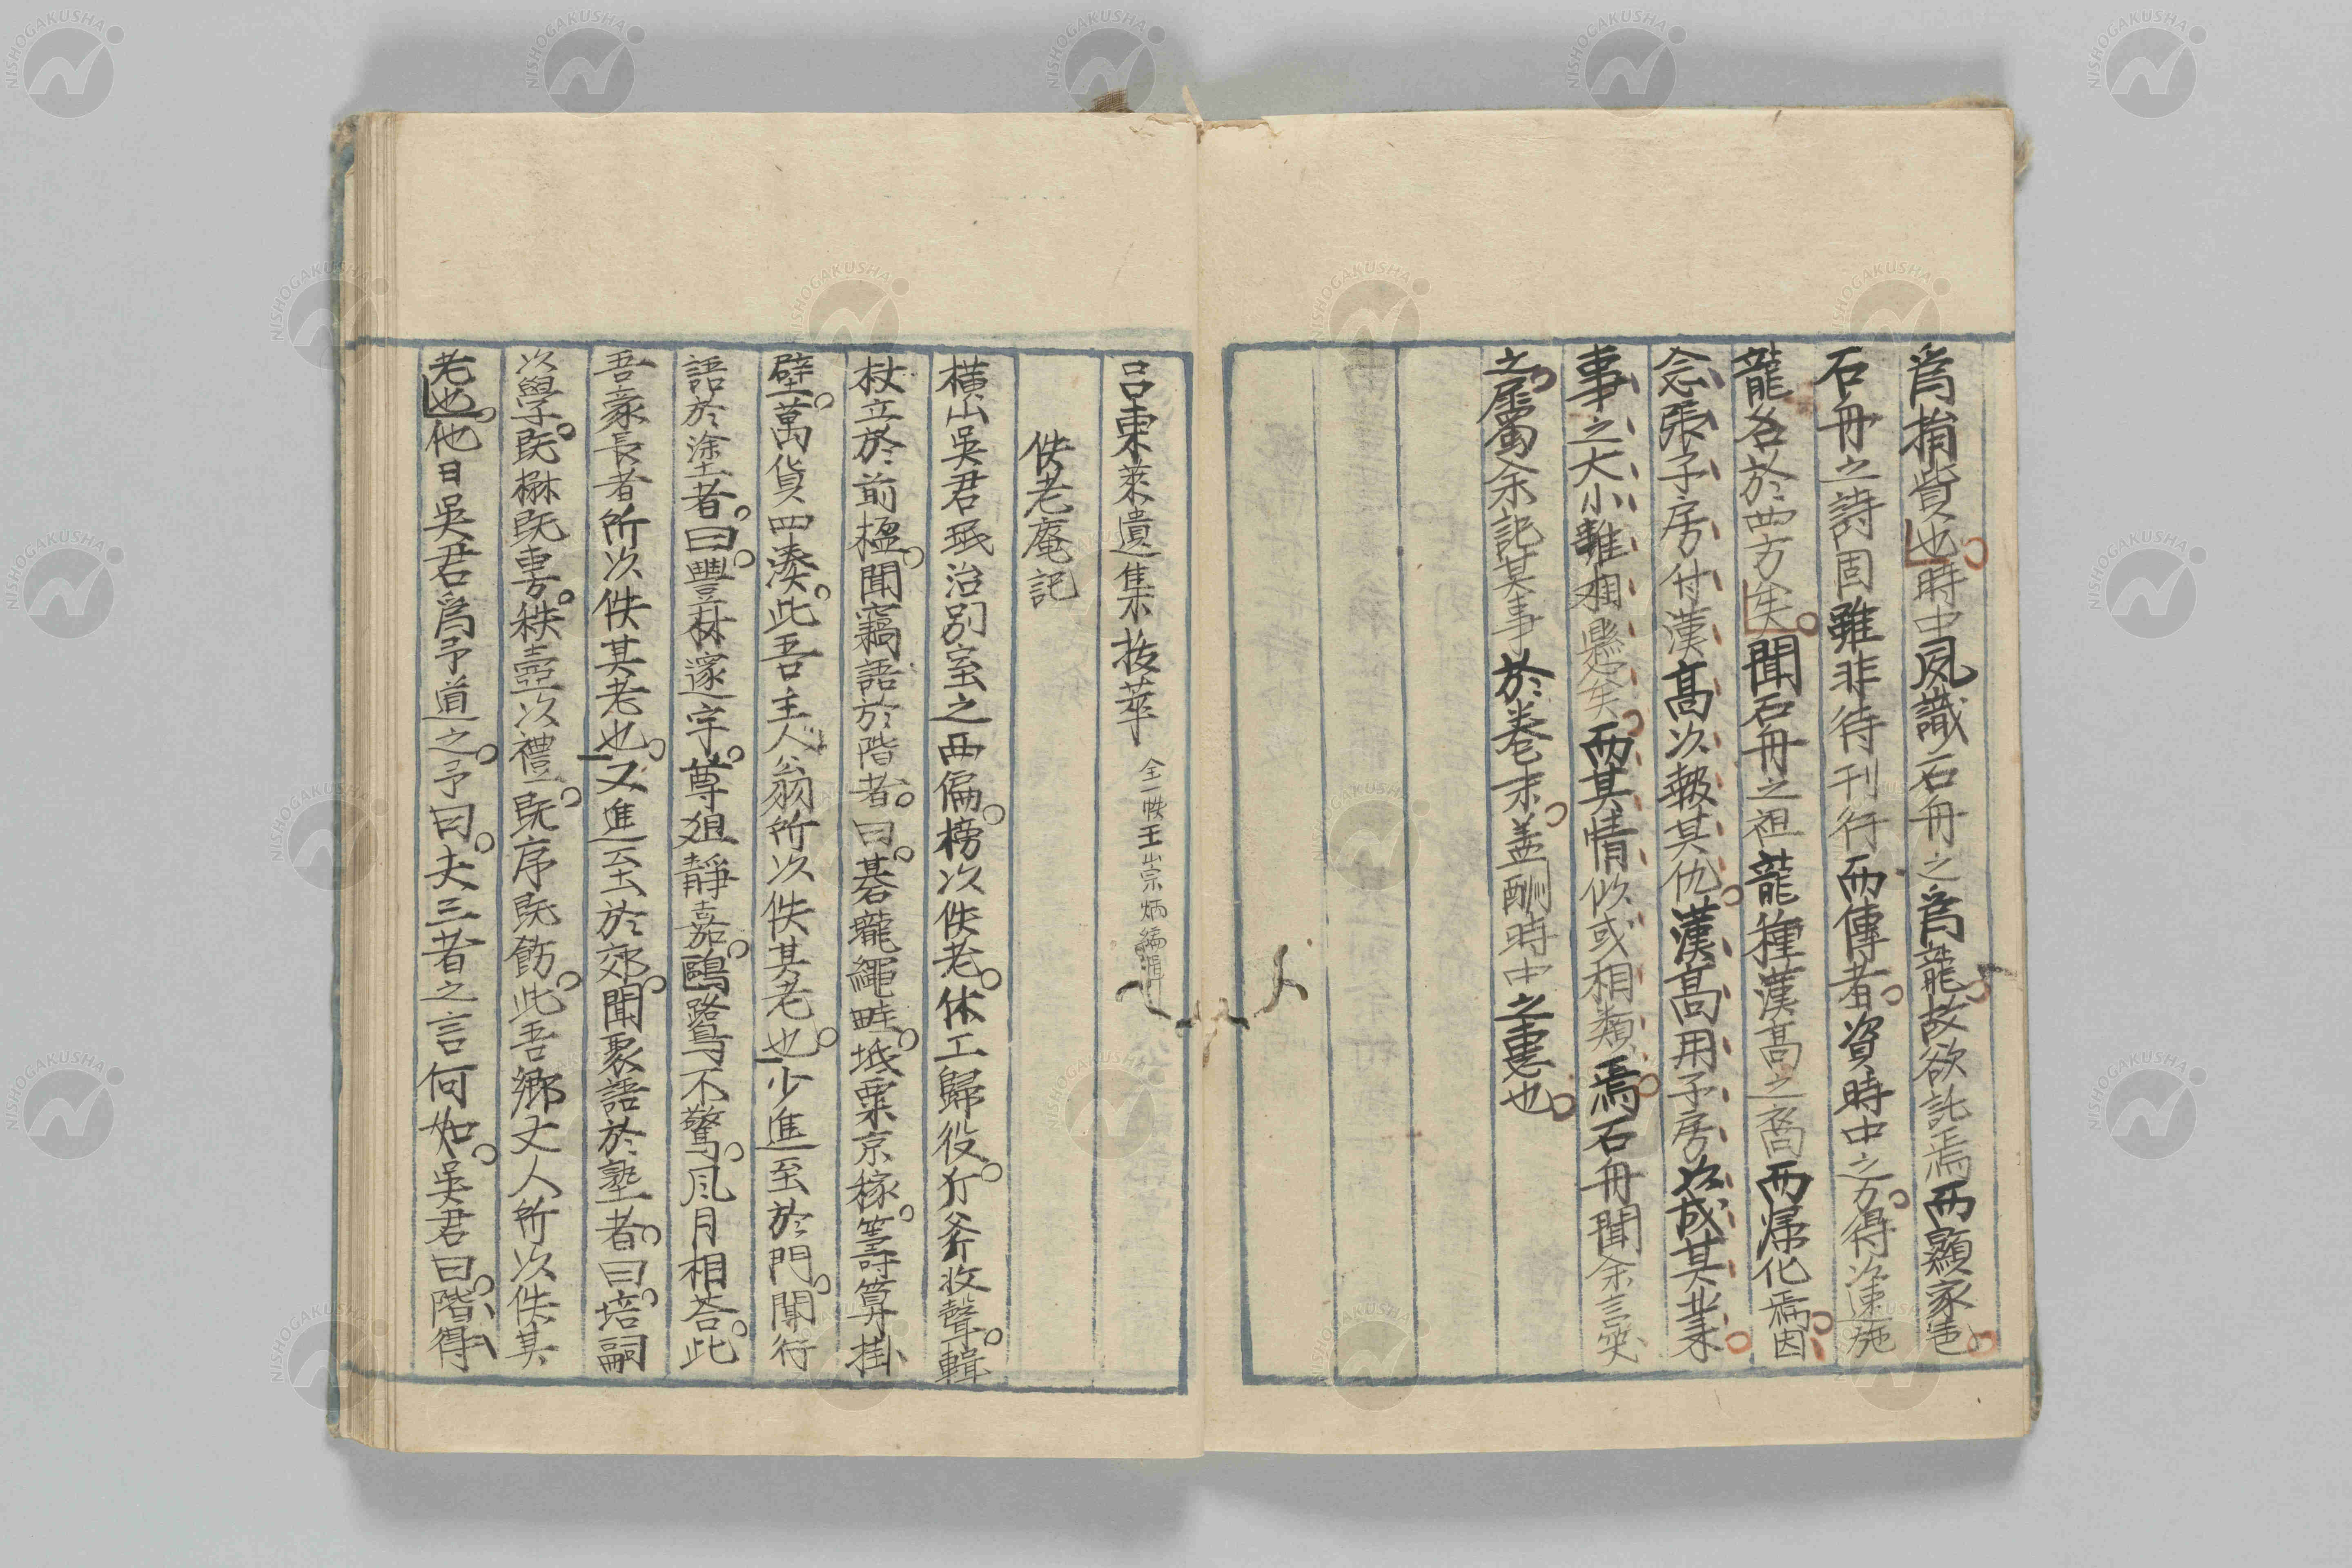 爲捐貲也。時中夙識石舟之爲龍。故欲託焉而顯家邑。
石舟之詩固雖非待刊行而傳者。資時中之力。得速施
龍名於西方矣。聞石舟之祖龍種漢髙之裔而帰化焉。因
念張子房付漢髙次報其仇。漢髙用子房次成其業。
事之大小雖相懸矣。而其情似或相類焉。石舟聞余言突
之。屬余記其事於卷末。盖酬時中之恵也。
呂東萊遺集抜萃 全一帙王崇炳編輯
佚老庵記
橫山吳君珉治別室之西偏。榜次佚老。休工歸役。斤斧收聲。輯
杖立於前楹。聞竊語於階者。曰。碁壠繩畦。坻粟京稼。籌算掛
壁。萬貨四湊。此吾主人翁所次佚其老也。少進至於門。聞行
語於塗者。曰。豐林邃宇。尊俎靜嘉。鷗鷺不驚。風月相荅。此
吾家長者所次佚其老也。又進至於郊。聞聚語於塾者。曰。培嗣
次學。既楙既專。秩壺次禮。既序既飭。此吾鄉丈人所次佚其
老也。他日吳君爲予道之。予曰。夫三者之言何如。吳君曰。階得